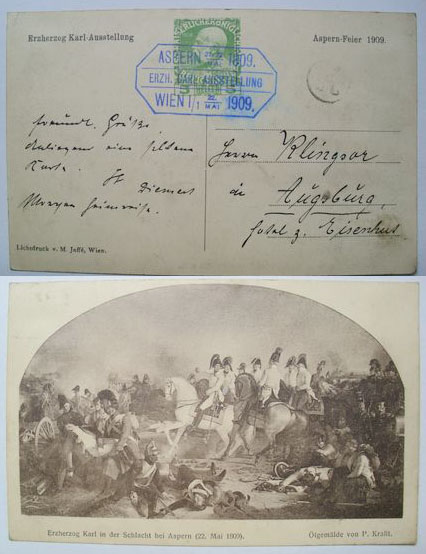 Erzherzog Karl-Ausstellung
Aspern-Feier 1909.
ASPERN 21.-22. MAI. 1809.
ERZH. CARL-AUSSTELLUNG
WIEN I/1 22. MAI 1909.
freundl. Grüße.
eine seltene
Karte.
Morgen Heimreise.
Herrn Klingsor
in Augsburg,
Hotel z. Eisenhut
Lichtdruck v. M. Jaffé, Wien.
Erzherzog Karl in der Schlacht bei Aspern (22. Mai 1909).
Ölgemälde von P. Krafft.